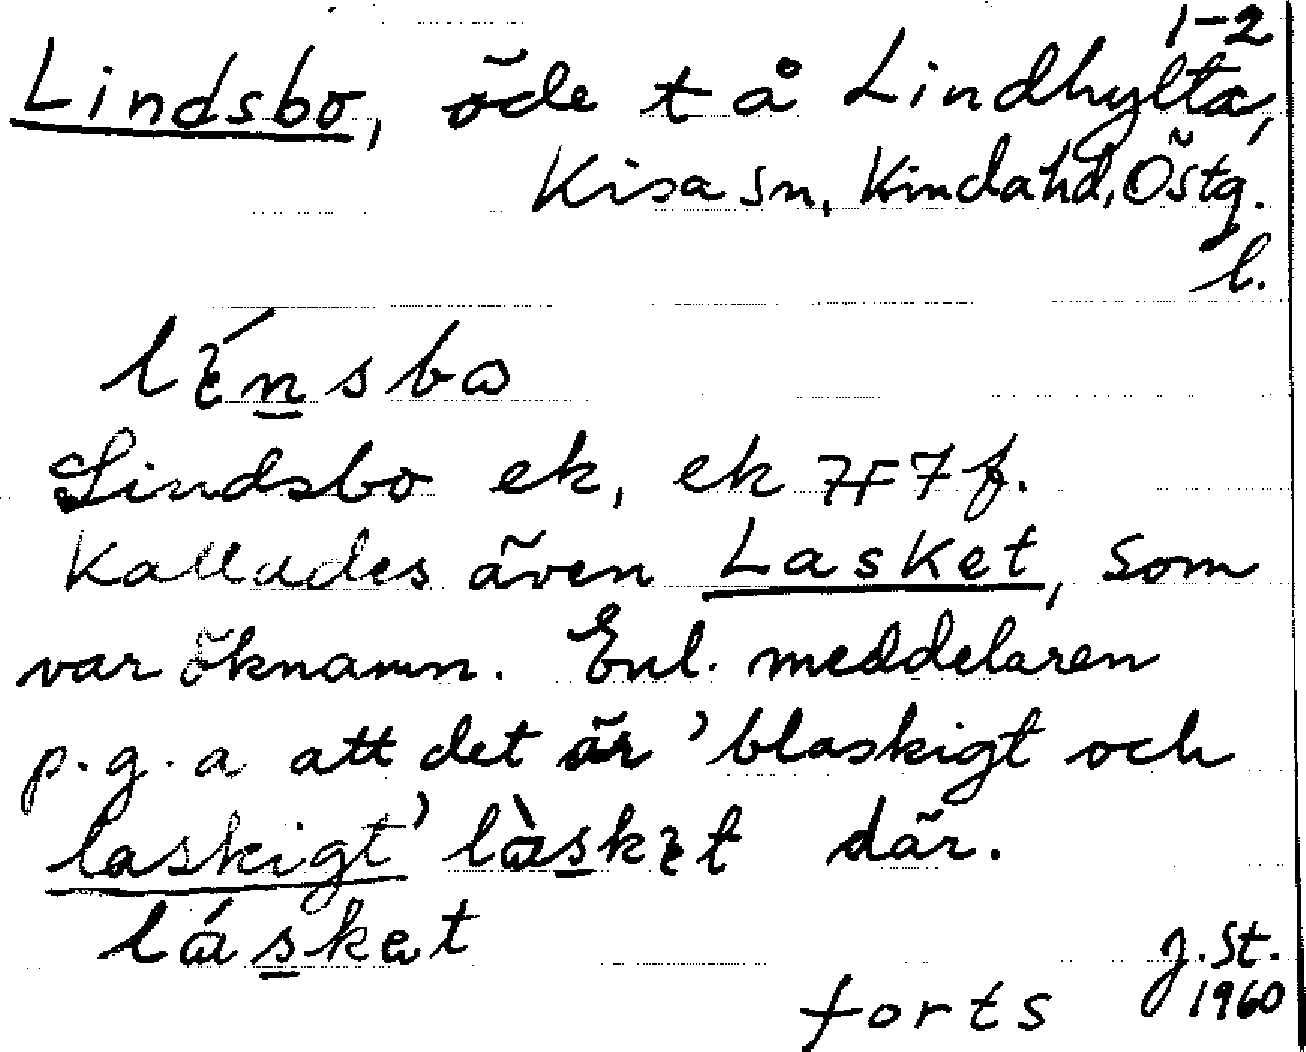 1-2
Lindsbo, öde t å Lindhylta,
Kisa sn, Kinda hd, Östg.
l.
lénsbo
Lindsbo ek, ek 7F7f.
Kallades även Lasket, som
var öknamn. Enl. meddelaren
p.g.a att det är 'blaskigt och
laskigt' làskɩt där.
láskat
forts
J. St.
1960